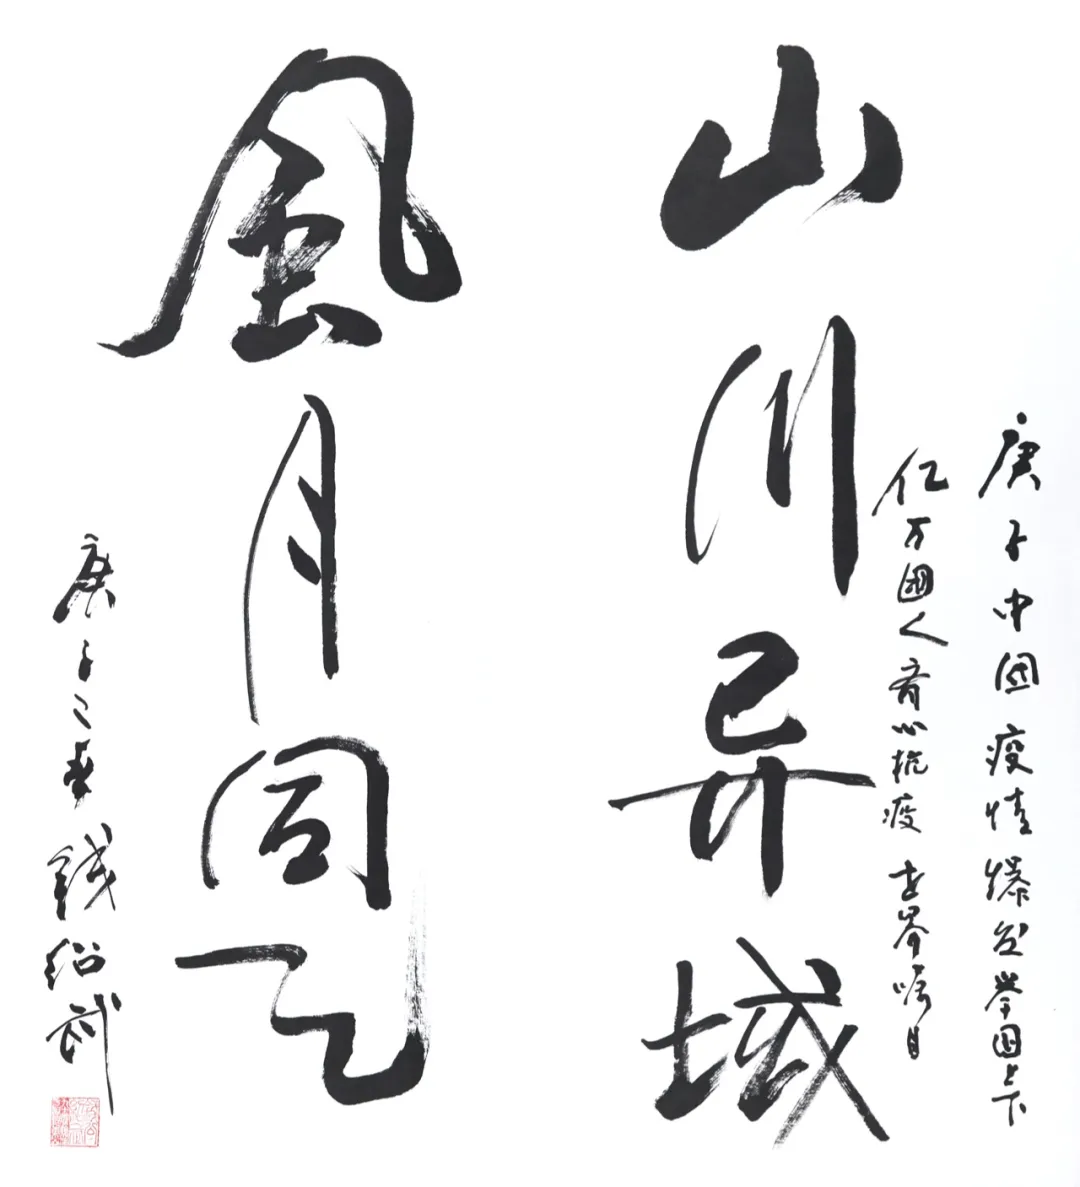 庚子中国疫情爆发举国上下
亿万國人齐心抗疫 世界嘱目
山川异域
風月同天
庚子之春 錢绍武